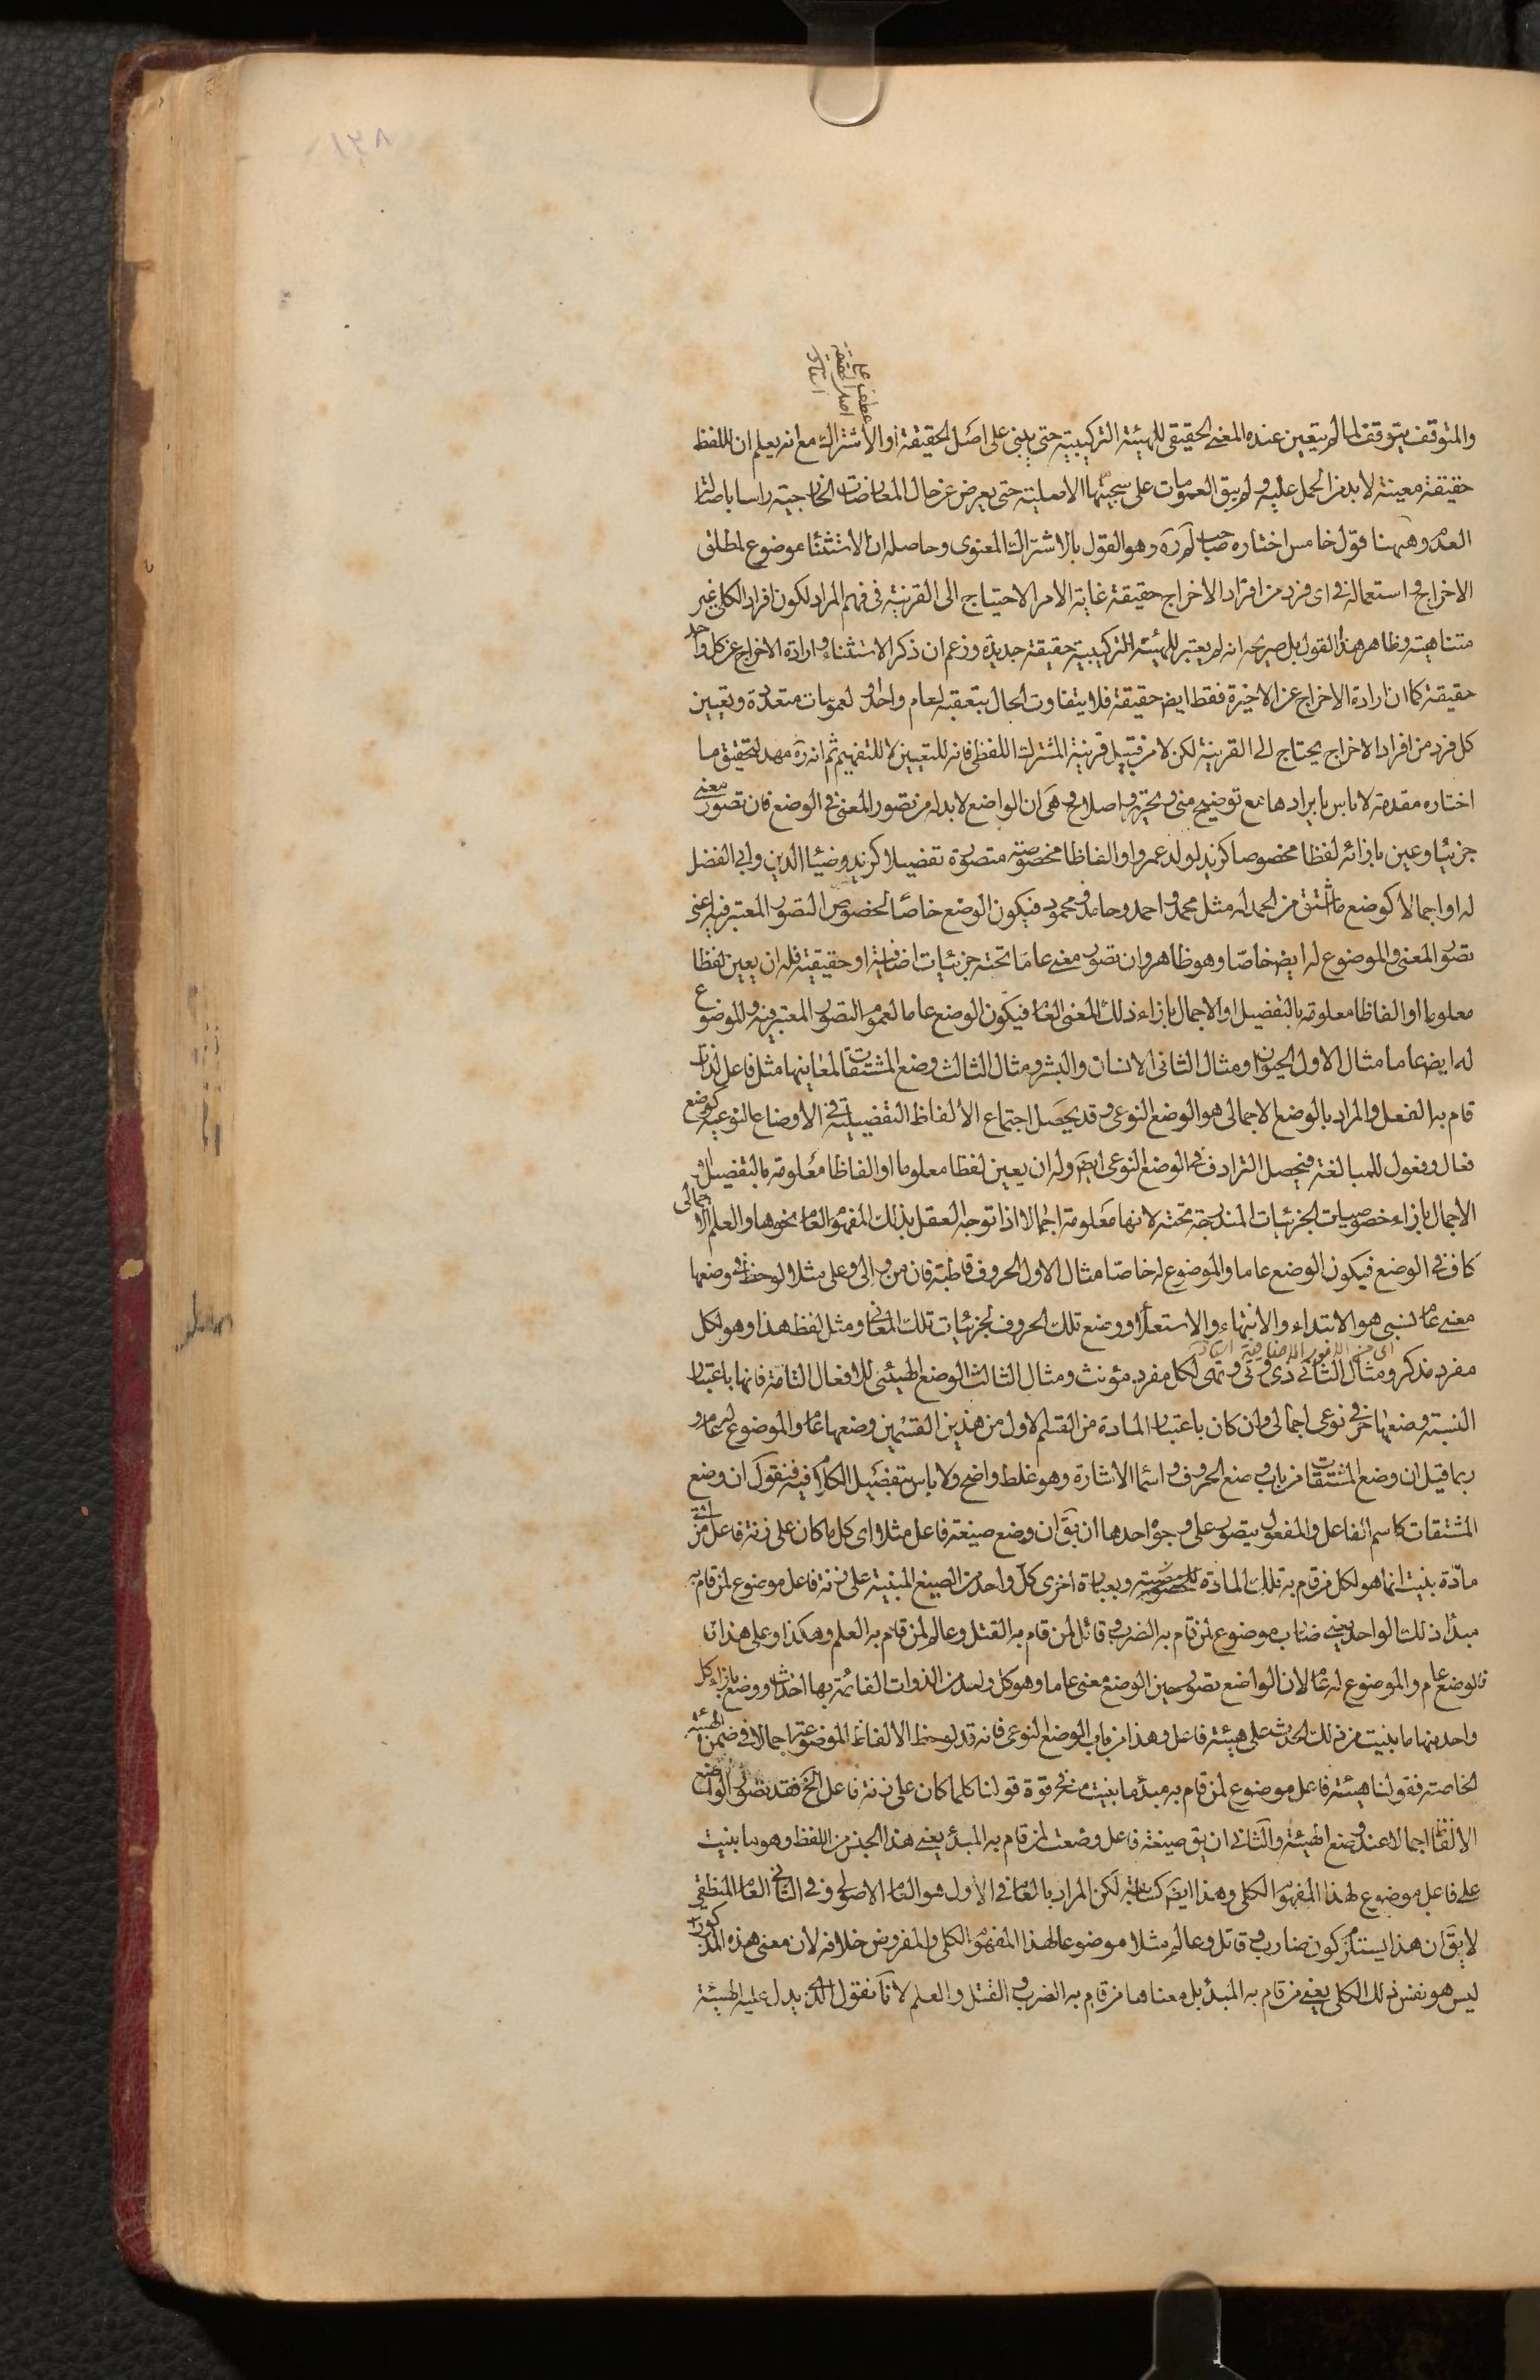 ١٣٨
عطف على
اصل الحقيقة
والمتوقف يتوقف لما لم يتعين عنده المعنى الحقيقى للهيئة التركيبية حتى يبنى على اصل الحقيقة او الاشتراك مع انه يعلم ان اللفظ
حقيقة معينة لا بد من الحمل عليه ولم يبق العمومات على سجيتها الاصلية حتى يعرض عن حال المعارضات الخارجية راسا باصالة
العدم وههنا قول خامس اختاره صاحب لم ره وهو القول بالاشتراك المعنوى وحاصله ان الاستثناء موضوع لمطلق
الاخراج واستعماله فى اى فرد من افراد الاخراج حقيقة غاية الامر الاحتياج الى القرينة فى فهم المراد لكون افراد الكلى غير
متناهية وظاهر هذا القول بل صريحه انه لم يعتبر للهيئة التركيبية حقيقة جديدة وزعم ان ذكر الاستثناء وارادة الاخراج عن كل واحد
حقيقة كما ان ارادة الاخراج عن الاخيرة فقط ايض حقيقة فلا يتفاوت الحال بتعقبه لعام واحد او لعمومات متعددة وتعيين
كل فرد من افراد الاخراج يحتاج الى القرينة لكن لا من قبيل قرينة المشترك اللفظى فانه للتعيين لا للتفهيم ثم انه ره مهد لتحقيق ما
اختاره مقدمة لا باس بايرادها مع توضيح منى وتحرير واصلاح وهى ان الواضع لا بد له من تصور المعنى فى الوضع فان تصور معنى
جزئيا وعين بازائه لفظا مخصوصا كزيد لولد عمرو او الفاظا مخصوصة متصورة تفصيلا كزيد وضياء الدين وابى الفضل
له او اجمالا كوضع ما اشتق من الحمد له مثل محمد واحمد وحامد ومحمود فيكون الوضع خاصا لخصوص التصور المعتبر فيه اعنى
تصور المعنى والموضوع له ايض خاصا وهو ظاهر وان تصور معنى عاما تحته جزئيات اضافية او حقيقية فله ان يعين لفظا
معلوما او الفاظا معلومة بالتفصيل او الاجمال بازاء ذلك المعنى العام فيكون الوضع عاما لعموم التصور المعتبر فيه والموضوع
له ايض عاما مثال الاول الحيوان ومثال الثانى الانسان والبشر ومثال الثالث وضع المشتقات لمعانيها مثل فاعل لذات
قام به الفعل والمراد بالوضع الاجمالى هو الوضع النوعى وقد يحصل اجتماع الألفاظ التفصيلية فى الاوضاع النوعية كوضع
فعال وفعول للمبالغة فيحصل الترادف فى الوضع النوعى ايض وله ان يعين لفظا معلوما او الفاظا معلومة بالتفصيل او
الاجمال بازاء خصوصيات الجزئيات المندرجة تحته لانها معلومة اجمالا اذا توجه العقل بذلك المفهوم العام نحوها والعلم الاجمالى
كاف فى الوضع فيكون الوضع عاما والموضوع له خاصا مثال الاول الحروف قاطبة فان من والى وعلى مثلا لوحظ فى وضعها
معنى عام نسبى هو الابتداء والانتهاء والاستعلاء ووضع تلك الحروف لجزئيات تلك المعانى ومثل لفظ هذا وهو لكل
مفرد مذكر ومثال الثانى ذى وتى وتهى لكل مفرد مؤنث ومثال الثالث الوضع الهيئتى للافعال التامة فانها باعتبار
النسبة وضعها حرفى نوعى اجمالى وان كان باعتبار المادة من القسم الاول من هذين القسمين وضعها عام والموضوع له عام و
ربما قيل ان وضع المشتقات من باب وضع الحروف واسماء الاشارة وهو غلط واضح ولا باس بتفصيل الكلام فيه فنقول ان وضع
المشتقات كاسم الفاعل والمفعول يتصور على وجوه احدها ان يق ان وضع صيغة فاعل مثلا اى كل ما كان على زنة فاعل من
مادة بنيت انما هو لكل من قام به تلك المادة وبعبارة اخرى كل واحد من الصيغ المبنية على زنة فاعل موضوع لمن قام به
مبدأ ذلك الواحد يعنى ضارب موضوع لمن قام به الضرب وقاتل لمن قام به القتل وعالم لمن قام به العلم وهكذا وعلى هذا
فالوضع عام والموضوع له عام لان الواضع تصور حين الوضع معنى عاما وهو كل واحد من الذوات القائمة بها احداث ووضع بازاء كل
واحد منها ما بنيت من ذلك الحدث على هيئة فاعل وهذا من باب الوضع النوعى فانه قد لوحظ الالفاظ الموضوعة اجمالا فى ضمن الهيئة
الخاصة فقولنا هيئة فاعل موضوع لمن قام به مبدء ما بنيت منه فى قوة قولنا كلما كان على زنة فاعل الخ فقد تصور الواضع
الالفاظ اجمالا عند وضع الهيئة والثانى ان يق صيغة فاعل وضعت لمن قام به المبدء يعنى هذا الجنس من اللفظ وهو ما بنيت
على فاعل موضوع لهذا المفهوم الكلى وهذا ايض كسابقه لكن المراد بالعام فى الاول هو العام الاصولى وفى الثانى العام المنطقى
لا يق ان هذا يستلزم كون ضارب وقاتل وعالم مثلا موضوعا لهذا المفهوم الكلى والمفروض خلافه لان معنى هذه المذكورات
ليس هو نفس ذلك الكلى يعنى من قام به المبدء بل معناها من قام به الضرب والقتل والعلم لانا نقول الذى يدل عليه الهيئة